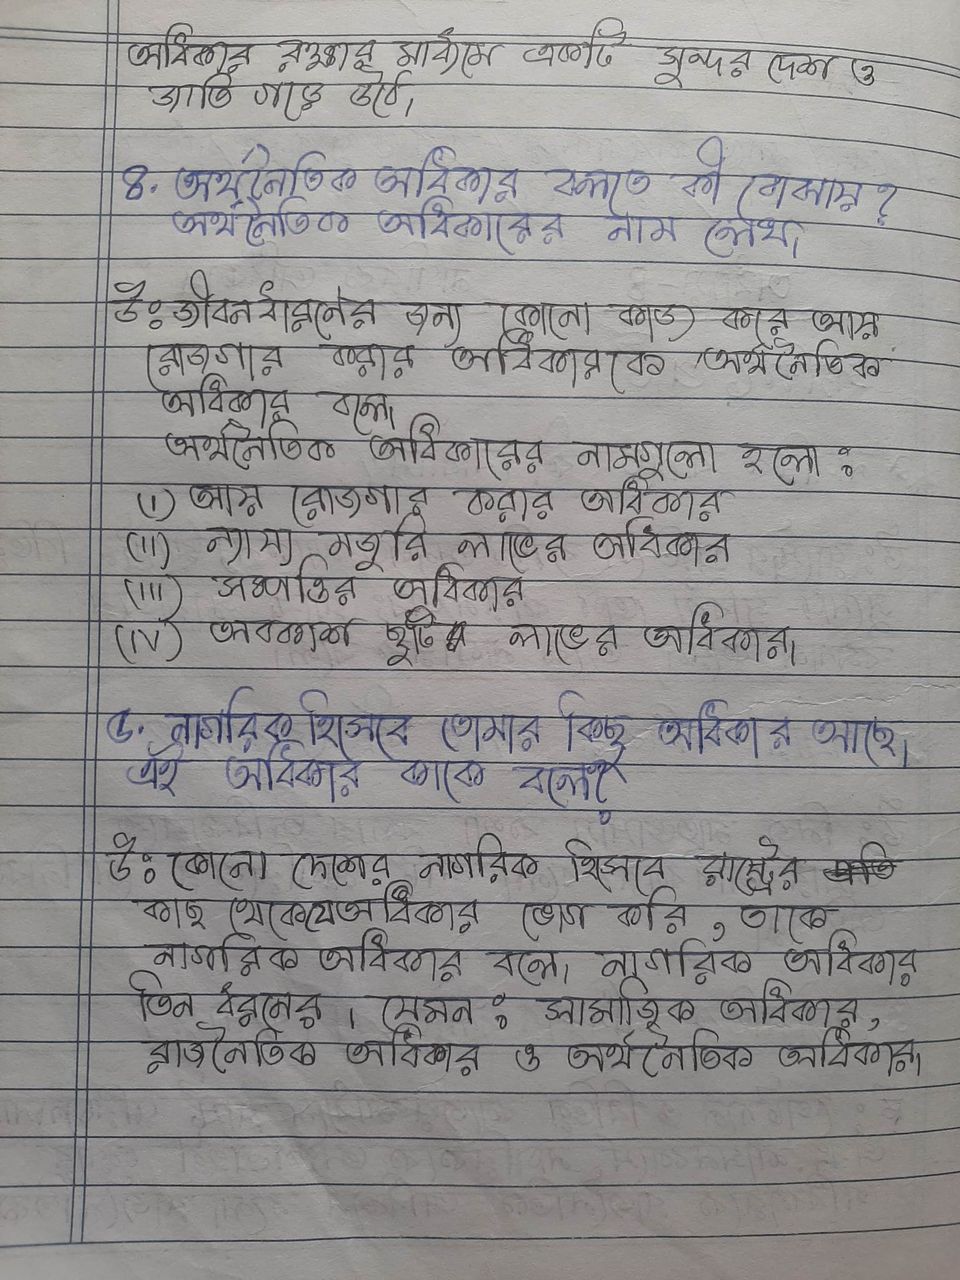 অধিকার রক্ষার মাধ্যমে একটি সুন্দর দেশ ও
জাতি গড়ে উঠে।
৪. অর্থনৈতিক অধিকার বলতে কী বোঝায়?
অর্থনৈতিক অধিকারের নাম লেখ।
উঃ জীবনধারনের জন্য কোনো কাজ করে আয়
রোজগার করার অধিকারকে অর্থনৈতিক
অধিকার বলে।
অর্থনৈতিক অধিকারের নামগুলো হলো :
(I) আয় রোজগার করার অধিকার
(II) ন্যায্য মজুরি লাভের অধিকার
(III) সম্পত্তির অধিকার
(IV) অবকাশ ছুটি লাভের অধিকার।
৫. নাগরিক হিসেবে তোমার কিছু অধিকার আছে।
এই অধিকার কাকে বলে?
উঃ কোনো দেশের নাগরিক হিসেবে রাষ্ট্রের প্রতি
কাছ থেকে যে অধিকার ভোগ করি, তাকে
নাগরিক অধিকার বলে। নাগরিক অধিকার
তিন ধরনের। যেমন : সামাজিক অধিকার,
রাজনৈতিক অধিকার ও অর্থনৈতিক অধিকার।